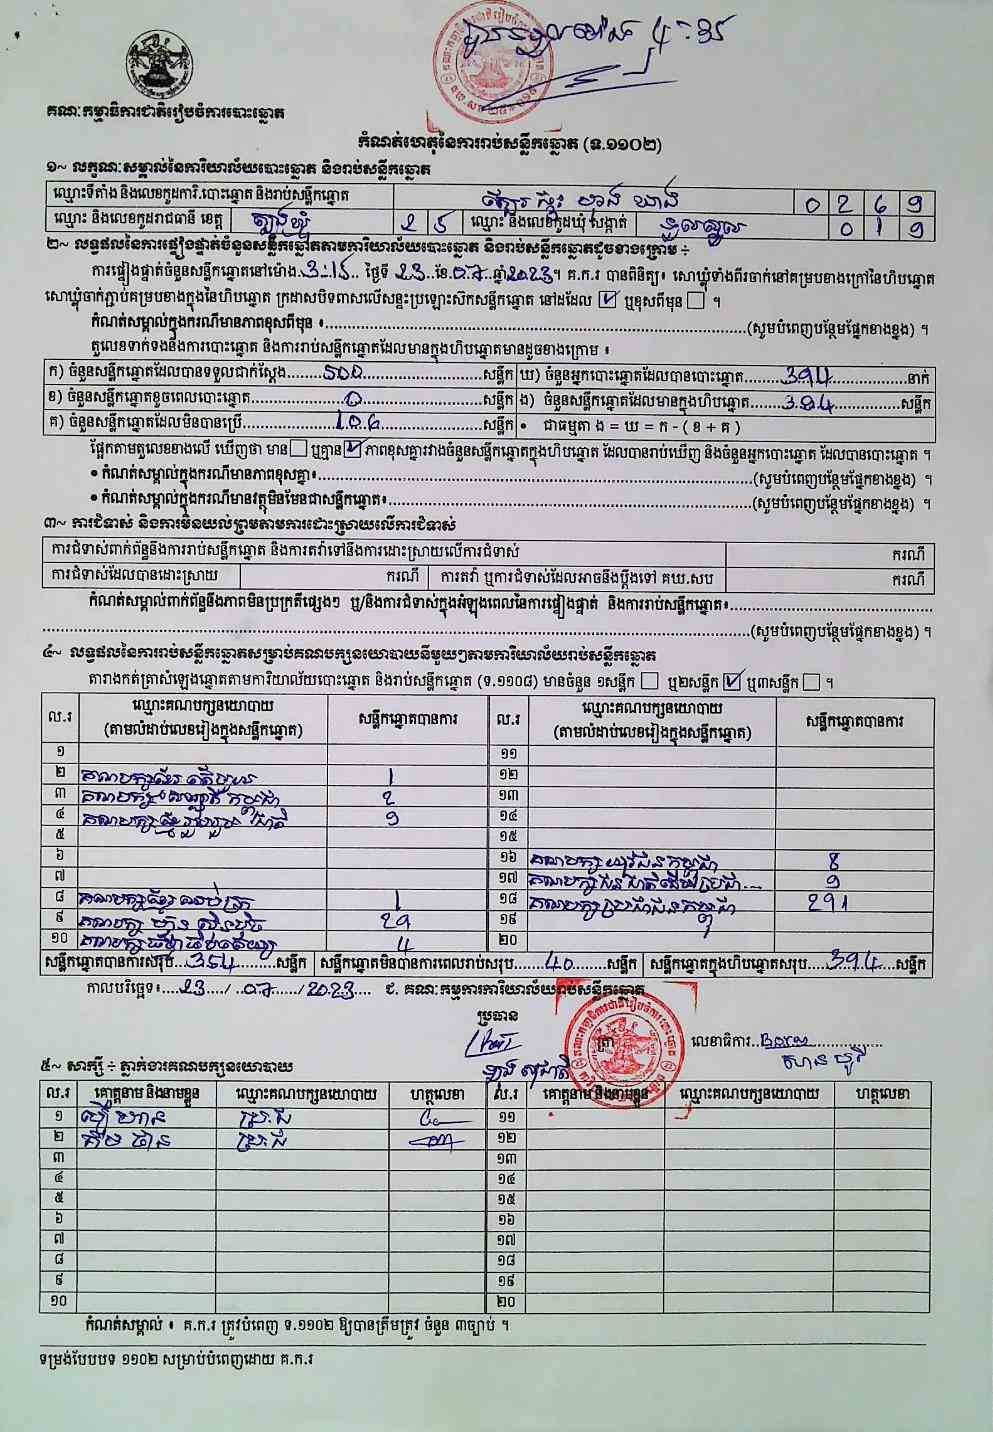 គណៈកម្មាធិការជាតិរៀបចំការបោះឆ្នោត
កំណត់ហេតុនៃការរាប់សន្លឹកឆ្នោត (ទ.១១០២)
១~ លក្ខណៈសម្គាល់នៃការិយាល័យបោះឆ្នោត និងរាប់សន្លឹកឆ្នោត
ឈ្មោះទីតាំង និងលេខកូដការិ.បោះឆ្នោត និងរាប់សន្លឹកឆ្នោត 0 2 6 9
ឈ្មោះ និងលេខកូដរាជធានី ខេត្ត ត្បូងឃ្មុំ 2 5 ឈ្មោះ និងលេខកូដឃុំ សង្កាត់ 0 1 9
២~ លទ្ធផលនៃការផ្ទៀងផ្ទាត់ចំនួនសន្លឹកឆ្នោតតាមការិយាល័យបោះឆ្នោត និងរាប់សន្លឹកឆ្នោតដូចខាងក្រោម ៖
ការផ្ទៀងផ្ទាត់ចំនួនសន្លឹកឆ្នោតនៅម៉ោង 3:15 ថ្ងៃទី 23 ខែ 07 ឆ្នាំ 2023។ គ.ក.រ បានពិនិត្យ៖ សោឃ្លុំទាំងពីរចាក់នៅគម្របខាងក្រៅនៃហិបឆ្នោត
សោឃ្លុំចាក់ភ្ជាប់គម្របខាងក្នុងនៃហិបឆ្នោត ក្រដាសបិទពាសលើសន្ទះប្រឡោះសិកសន្លឹកឆ្នោត នៅដដែល ☑ ឬខុសពីមុន ☐ ។
កំណត់សម្គាល់ក្នុងករណីមានភាពខុសពីមុន ៖ (សូមបំពេញបន្ថែមផ្នែកខាងខ្នង) ។
តួលេខទាក់ទងនឹងការបោះឆ្នោត និងការរាប់សន្លឹកឆ្នោតដែលមានក្នុងហិបឆ្នោតមានដូចខាងក្រោម ៖
ក) ចំនួនសន្លឹកឆ្នោតដែលបានទទួលជាក់ស្តែង 500 សន្លឹក ឃ) ចំនួនអ្នកបោះឆ្នោតដែលបានបោះឆ្នោត 394 នាក់
ខ) ចំនួនសន្លឹកឆ្នោតខូចពេលបោះឆ្នោត 0 សន្លឹក ង) ចំនួនសន្លឹកឆ្នោតដែលមានក្នុងហិបឆ្នោត 394 សន្លឹក
គ) ចំនួនសន្លឹកឆ្នោតដែលមិនបានប្រើ 106 សន្លឹក • ជាធម្មតា ង = ឃ = ក - ( ខ + គ )
ផ្អែកតាមតួលេខខាងលើ ឃើញថា មាន ☐ ឬគ្មាន ☑ ភាពខុសគ្នារវាងចំនួនសន្លឹកឆ្នោតក្នុងហិបឆ្នោត ដែលបានរាប់ឃើញ និងចំនួនអ្នកបោះឆ្នោត ដែលបានបោះឆ្នោត ។
• កំណត់សម្គាល់ក្នុងករណីមានភាពខុសគ្នា៖ (សូមបំពេញបន្ថែមផ្នែកខាងខ្នង) ។
• កំណត់សម្គាល់ក្នុងករណីមានវត្ថុមិនមែនជាសន្លឹកឆ្នោត៖ (សូមបំពេញបន្ថែមផ្នែកខាងខ្នង) ។
៣~ ការជំទាស់ និងការមិនយល់ព្រមតាមការដោះស្រាយលើការជំទាស់
ការជំទាស់ពាក់ព័ន្ធនឹងការរាប់សន្លឹកឆ្នោត និងការតវ៉ាទៅនឹងការដោះស្រាយលើការជំទាស់ ករណី
ការជំទាស់ដែលបានដោះស្រាយ ករណី ការតវ៉ា ឬការជំទាស់ដែលអាចនឹងប្តឹងទៅ គឃ.សប ករណី
កំណត់សម្គាល់ពាក់ព័ន្ធនឹងភាពមិនប្រក្រតីផ្សេងៗ ឬ/និងការជំទាស់ក្នុងអំឡុងពេលនៃការផ្ទៀងផ្ទាត់ និងការរាប់សន្លឹកឆ្នោត៖
(សូមបំពេញបន្ថែមផ្នែកខាងខ្នង) ។
៤~ លទ្ធផលនៃការរាប់សន្លឹកឆ្នោតសម្រាប់គណបក្សនយោបាយនីមួយៗតាមការិយាល័យរាប់សន្លឹកឆ្នោត
តារាងកត់ត្រាសំឡេងឆ្នោតតាមការិយាល័យបោះឆ្នោត និងរាប់សន្លឹកឆ្នោត (ទ.១១០៨) មានចំនួន ១សន្លឹក ☐ ឬ២សន្លឹក ☑ ឬ៣សន្លឹក ☐ ។
ល.រ ឈ្មោះគណបក្សនយោបាយ (តាមលំដាប់លេខរៀងក្នុងសន្លឹកឆ្នោត) សន្លឹកឆ្នោតបានការ ល.រ ឈ្មោះគណបក្សនយោបាយ (តាមលំដាប់លេខរៀងក្នុងសន្លឹកឆ្នោត) សន្លឹកឆ្នោតបានការ
១ ១១
២ 1 ១២
៣ 2 ១៣
៤ គណបក្សខ្មែររួបរួមជាតិ 9 ១៤
៥ ១៥
៦ ១៦ គណបក្សយុវជនកម្ពុជា 8
៧ ១៧ 9
៨ គណបក្សខ្មែរឈប់ក្រ 1 ១៨ គណបក្សប្រជាជនកម្ពុជា 291
៩ គណបក្សហ៊្វុនស៊ិនប៉ិច 29 ១៩
១០ គណបក្សធម្មាធិបតេយ្យ 4 ២០
សន្លឹកឆ្នោតបានការសរុប 354 សន្លឹក សន្លឹកឆ្នោតមិនបានការពេលរាប់សរុប 40 សន្លឹក សន្លឹកឆ្នោតក្នុងហិបឆ្នោតសរុប 394 សន្លឹក
កាលបរិច្ឆេទ៖ 23 / 07 / 2023 ជ. គណៈកម្មការការិយាល័យរាប់សន្លឹកឆ្នោត
ប្រធាន
ត្រា លេខាធិការ
៥~ សាក្សី ÷ ភ្នាក់ងារគណបក្សនយោបាយ
ល.រ គោត្តនាម និងនាមខ្លួន ឈ្មោះគណបក្សនយោបាយ ហត្ថលេខា ល.រ គោត្តនាម និងនាមខ្លួន ឈ្មោះគណបក្សនយោបាយ ហត្ថលេខា
១ ប្រ.ជ ១១
២ ប្រ.ជ ១២
៣ ១៣
៤ ១៤
៥ ១៥
៦ ១៦
៧ ១៧
៨ ១៨
៩ ១៩
១០ ២០
កំណត់សម្គាល់ ៖ គ.ក.រ ត្រូវបំពេញ ទ.១១០២ ឱ្យបានត្រឹមត្រូវ ចំនួន ៣ច្បាប់ ។
ទម្រង់បែបបទ ១១០២ សម្រាប់បំពេញដោយ គ.ក.រ